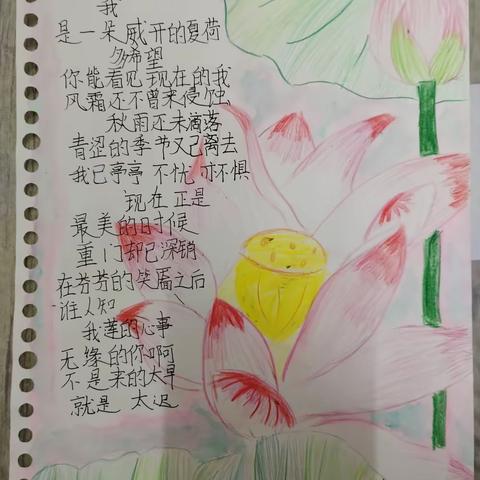 我
是一朵盛开的夏荷
多希望
你能看见现在的我
风霜还不曾来侵蚀
秋雨还未滴落
青涩的季节又已离去
我已亭亭 不忧 亦不惧
现在 正是
最美的时候
重门却已深锁
在芬芳的笑靥之后
谁人知
我莲的心事
无缘的你啊
不是来的太早
就是 太迟